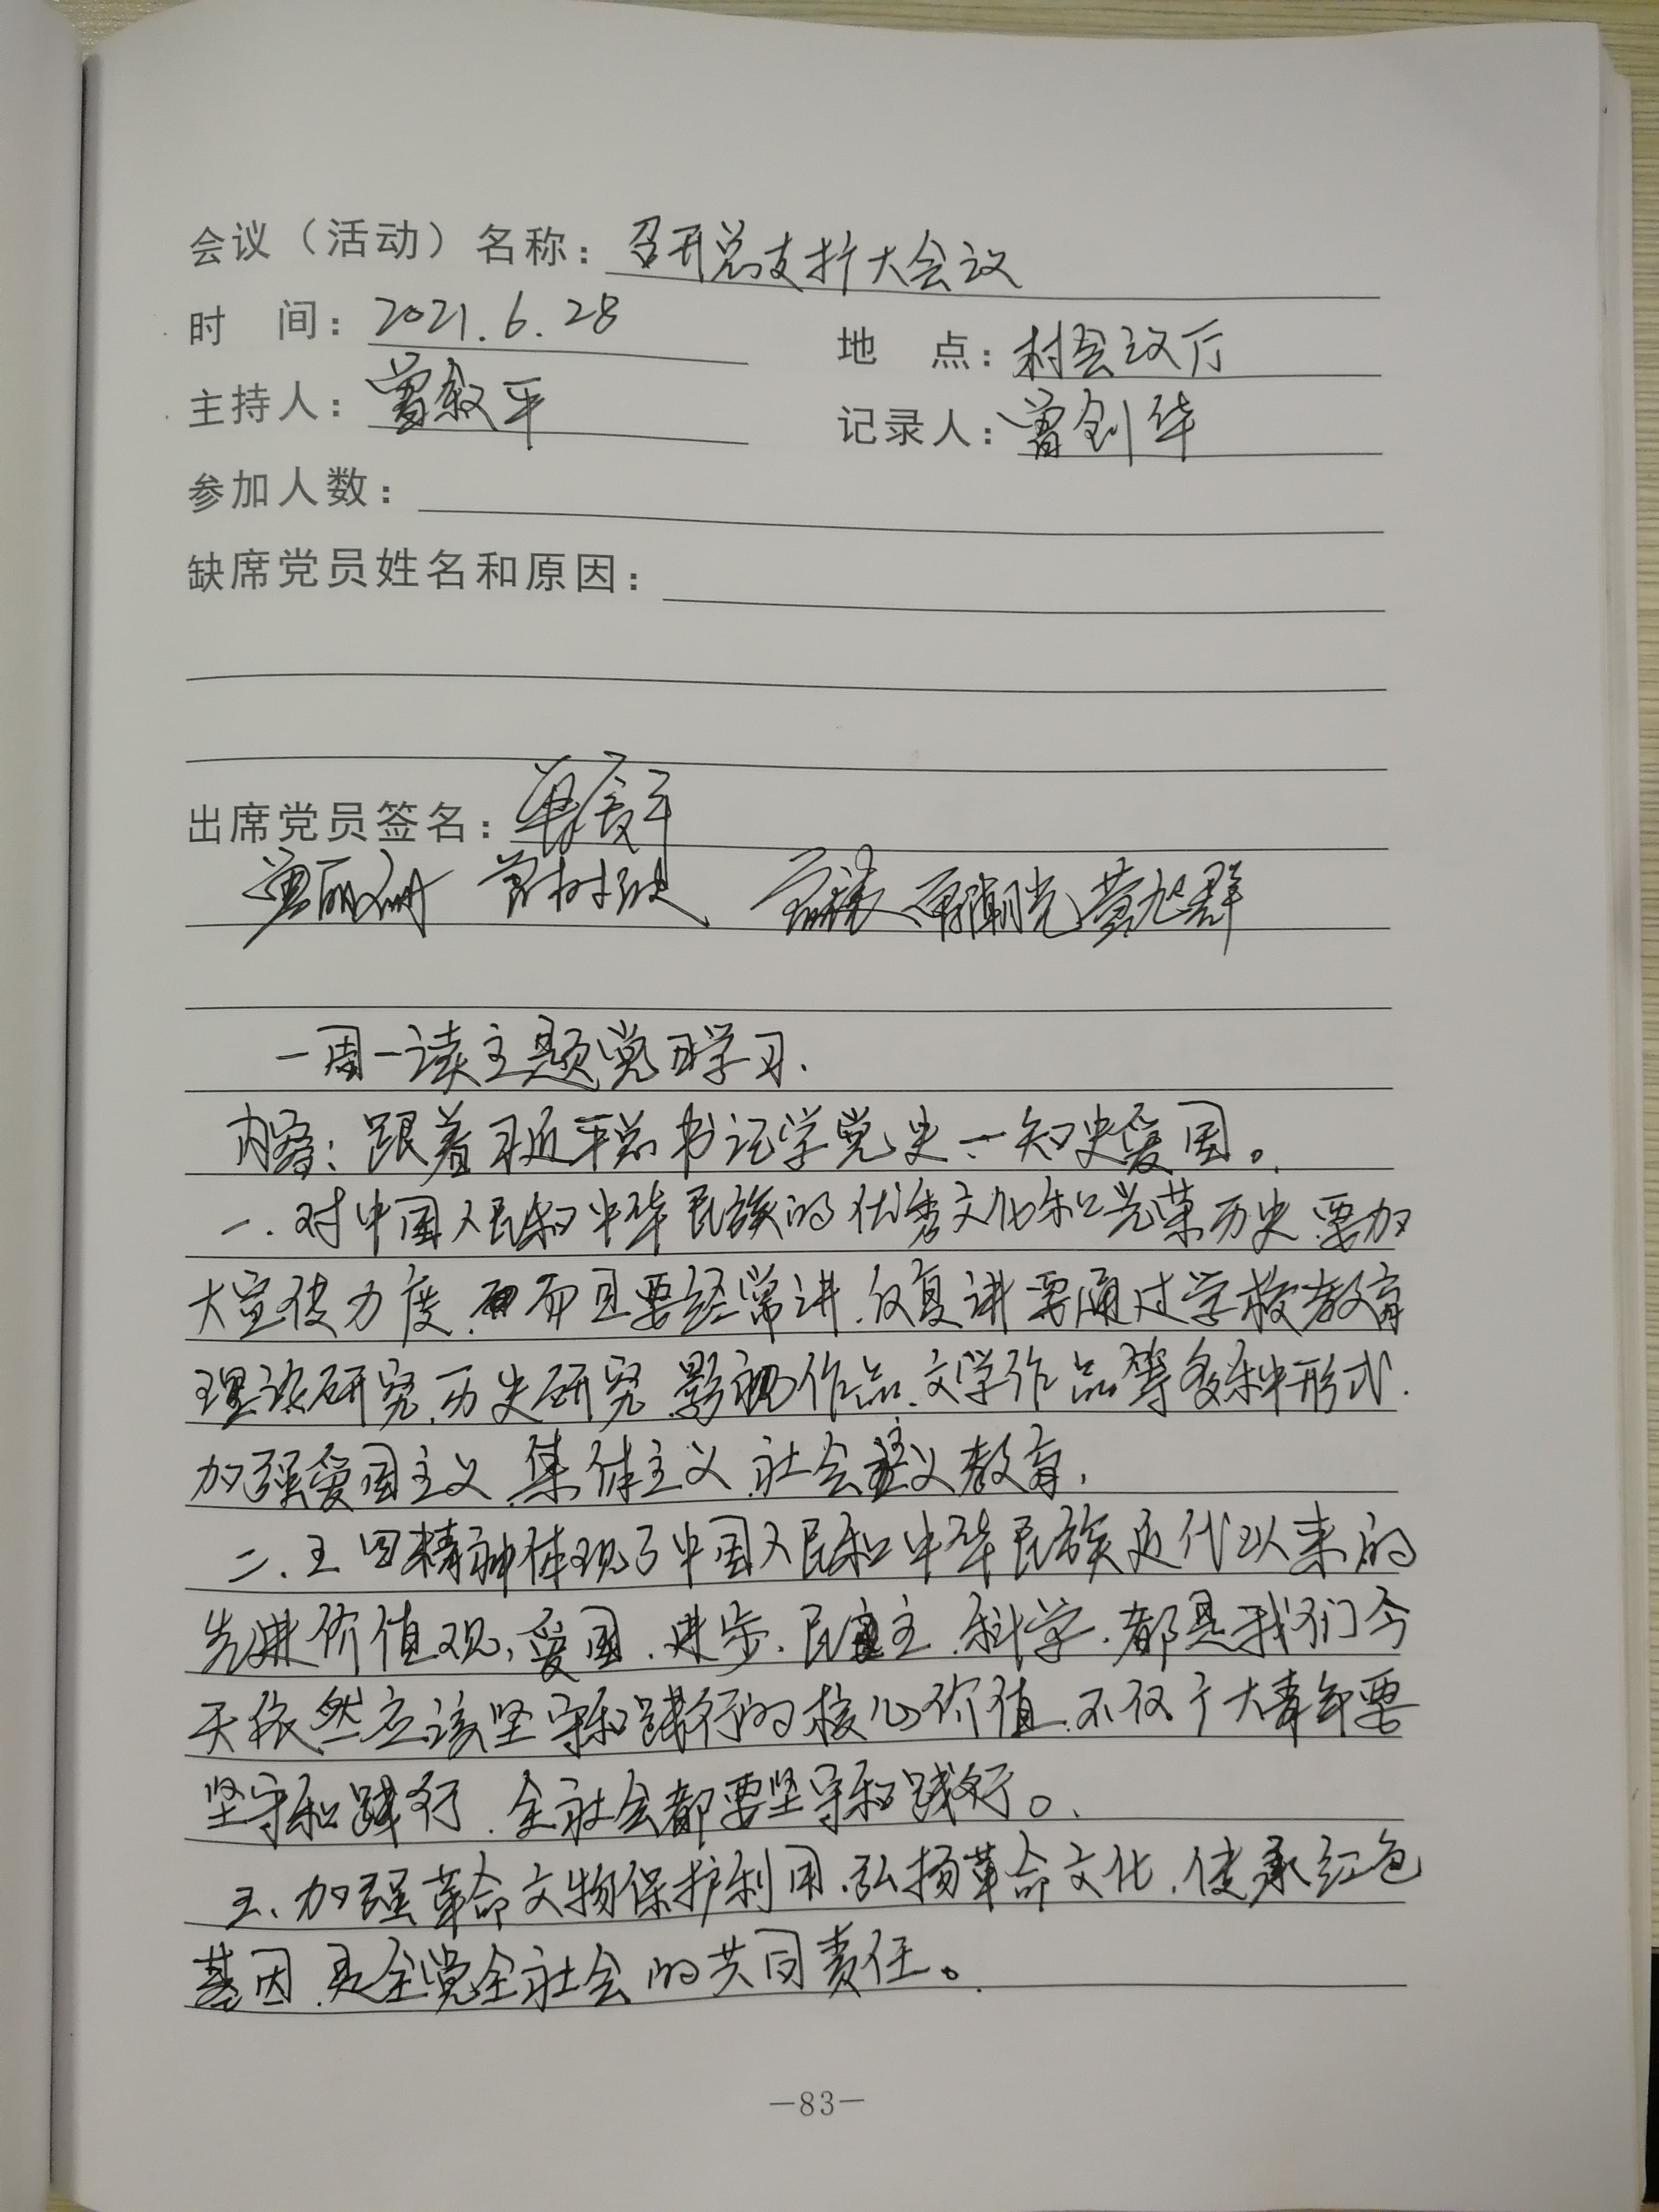 会议（活动）名称：召开总支扩大会议
时 间：2021.6.28 地 点：村会议厅
主持人：曾叙平 记录人：曾剑华
参加人数：
缺席党员姓名和原因：
出席党员签名：
一周一读主题党日学习.
内容：跟着习近平总书记学党史—知史爱国。
一.对中国人民和中华民族的优秀文化和光荣历史.要加
大宣传力度.而且要经常讲.反复讲.要通过学校教育
理论研究.历史研究.影视作品.文学作品等多种形式.
加强爱国主义.集体主义.社会主义教育.
二.五四精神体现了中国人民和中华民族近代以来的
先进价值观,爱国.进步.民主.科学.都是我们今
天依然应该坚守和践行的核心价值.不仅广大青年要
坚守和践行.全社会都要坚守和践行。
三.加强革命文物保护利用.弘扬革命文化.传承红色
基因.是全党全社会的共同责任。
—83—